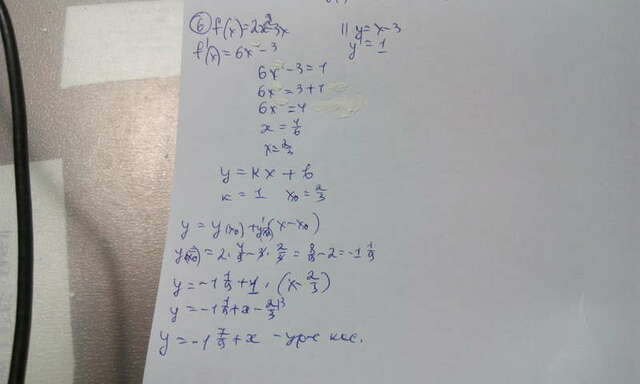 ⑥ f(x)=2x²-3x || y=x-3
f'(x)=6x-3 y'=1
6x-3=1
6x=3+1
6x=4
x=4/6
x=2/3
y=kx+b
k=1 x₀=2/3
y=y(x₀)+y'(x₀)(x-x₀)
y(x₀)=2·4/9-3·2/3=8/9-2=-1 1/9
y=-1 1/9+1·(x-2/3)
y=-1 1/9+x-2/3
y=-1 7/9+x -ур-е кас.